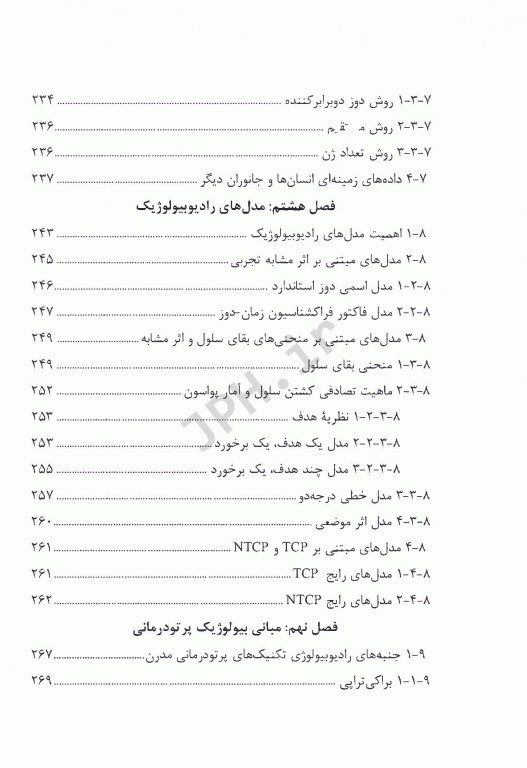 ۷-۳-۱ روش دوز دوبرابرکننده ........ ۲۳۴
۷-۳-۲ روش ........ ۲۳۶
۷-۳-۳ روش تعداد ژن ........ ۲۳۶
۷-۴ داده‌های زمینه‌ای انسان‌ها و جانوران دیگر ........ ۲۳۷
فصل هشتم: مدل‌های رادیوبیولوژیک
۸-۱ اهمیت مدل‌های رادیوبیولوژیک ........ ۲۴۳
۸-۲ مدل‌های مبتنی بر اثر مشابه تجربی ........ ۲۴۵
۸-۲-۱ مدل اسمی دوز استاندارد ........ ۲۴۶
۸-۲-۲ مدل فاکتور فراکشناسیون زمان-دوز ........ ۲۴۷
۸-۳ مدل‌های مبتنی بر منحنی‌های بقای سلول و اثر مشابه ........ ۲۴۹
۸-۳-۱ منحنی بقای سلول ........ ۲۴۹
۸-۳-۲ ماهیت تصادفی کشتن سلول و آمار پواسون ........ ۲۵۲
۸-۳-۲-۱ نظریهٔ هدف ........ ۲۵۳
۸-۳-۲-۲ مدل یک هدف، یک برخورد ........ ۲۵۳
۸-۳-۲-۳ مدل چند هدف، یک برخورد ........ ۲۵۵
۸-۳-۳ مدل خطی درجه‌دو ........ ۲۵۷
۸-۳-۴ مدل اثر موضعی ........ ۲۶۰
۸-۴ مدل‌های مبتنی بر TCP و NTCP ........ ۲۶۱
۸-۴-۱ مدل‌های رایج TCP ........ ۲۶۱
۸-۴-۲ مدل‌های رایج NTCP ........ ۲۶۲
فصل نهم: مبانی بیولوژیک پرتودرمانی
۹-۱ جنبه‌های رادیوبیولوژی تکنیک‌های پرتودرمانی مدرن ........ ۲۶۷
۹-۱-۱ براکی‌تراپی ........ ۲۶۹
JPH.ir